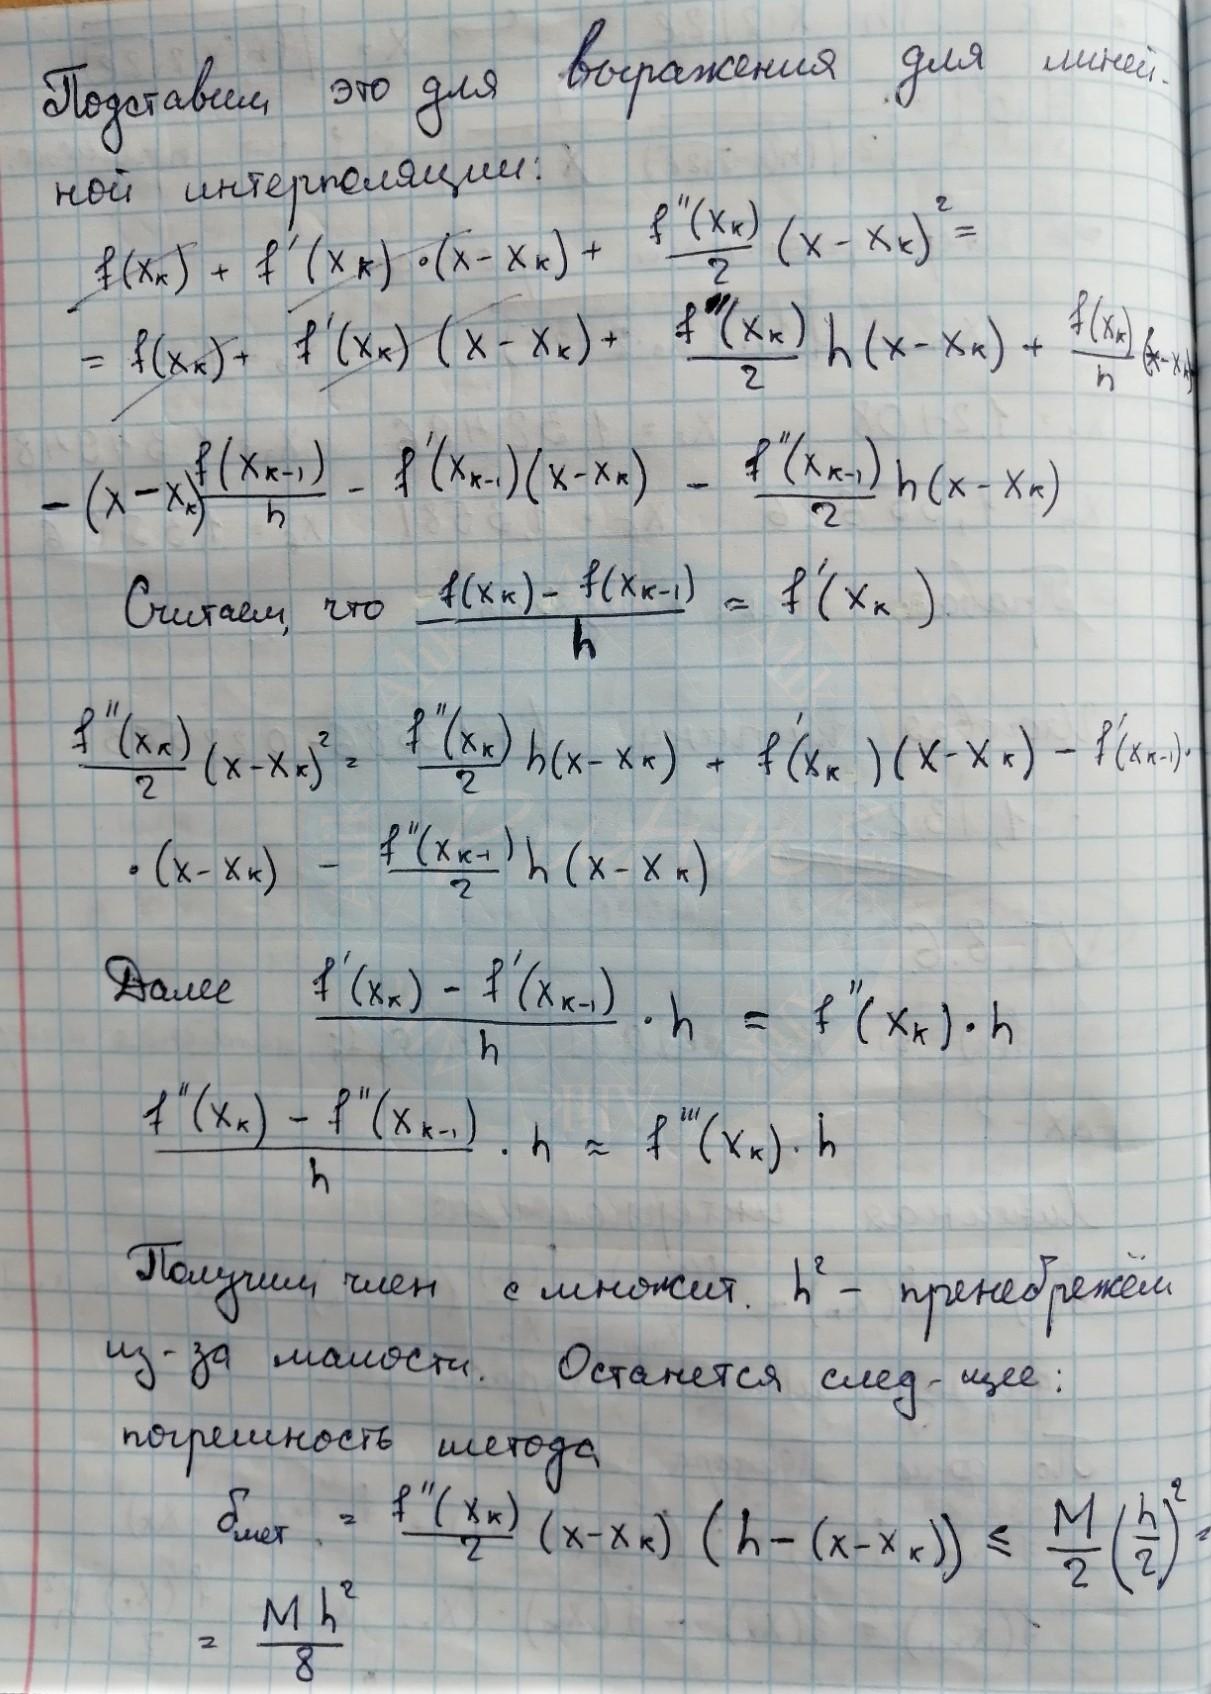 Подставим это для выражения для линей-
ной интерполяции:
f(xₖ) + f'(xₖ)·(x-xₖ) + f''(xₖ)/2 (x-xₖ)² =
= f(xₖ) + f'(xₖ)(x-xₖ) + f''(xₖ)/2 h(x-xₖ) + f(xₖ)/h (x-xₖ)
- (x-xₖ) f(xₖ₋₁)/h - f'(xₖ₋₁)(x-xₖ) - f''(xₖ₋₁)/2 h(x-xₖ)
Считаем, что (f(xₖ) - f(xₖ₋₁))/h ≈ f'(xₖ)
f''(xₖ)/2 (x-xₖ)² = f''(xₖ)/2 h(x-xₖ) + f'(xₖ)(x-xₖ) - f'(xₖ₋₁)·
·(x-xₖ) - f''(xₖ₋₁)/2 h(x-xₖ)
Далее (f'(xₖ) - f'(xₖ₋₁))/h · h = f''(xₖ)·h
(f''(xₖ) - f''(xₖ₋₁))/h · h ≈ f'''(xₖ)·h
Получим член с множит. h² - пренебрежём
из-за малости. Останется след-щее:
погрешность метода
δмет. = f''(xₖ)/2 (x-xₖ)(h-(x-xₖ)) ≤ M/2 (h/2)² =
= Mh²/8